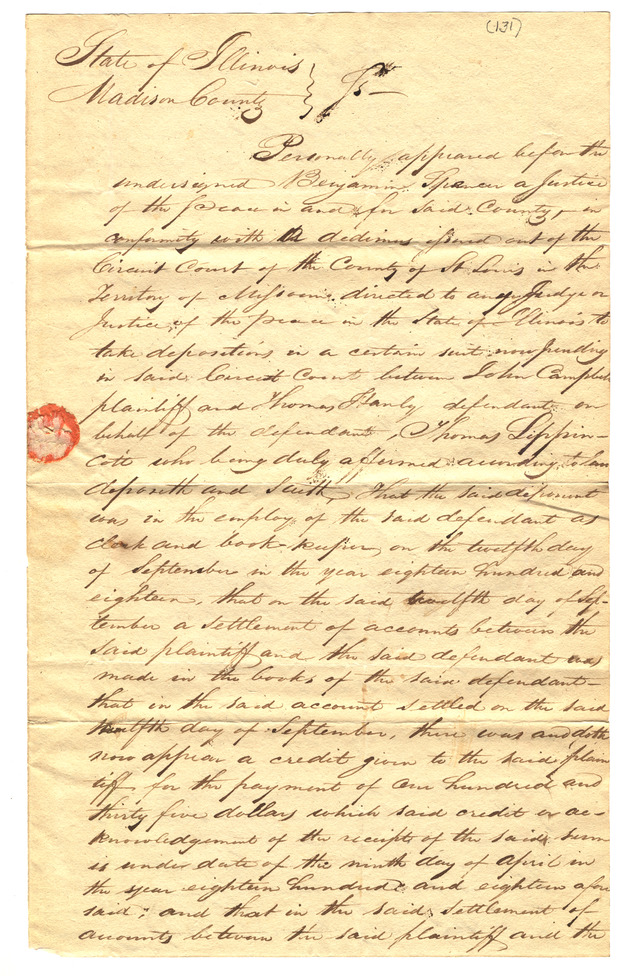 (131)
State of Illinois
Madison County } Ss
Personally appeared before the
undersigned Benjamin Spencer a Justice
of the Peace in and for said County, in
conformity with a dedimus issued out of the
Circuit Court of the County of St Louis in the
Territory of Missouri directed to any Judge or
Justice of the peace in the State of Illinois to
take depositions in a certain suit now pending
in said Circuit Court between John Campbell
plaintiff and Thomas Hanly defendant on
behalf of the defendant, Thomas Lippin-
cott who being duly affirmed according to law
deposeth and saith, That the said deponent
was in the employ of the said defendant as
clerk and book-keeper, on the twelfth day
of September in the year eighteen hundred and
eighteen, that on the said twelfth day of Sep-
tember a settlement of accounts between the
said plaintiff and the said defendant was
made in the books of the said defendant-
that in the said account settled on the said
twelfth day of September, there was and doth
now appear a credit given to the said plain
tiff for the payment of one hundred and
thirty five dollars which said credit or ac-
knowledgement of the receipt of the said sum
is under date of the ninth day of April in
the year eighteen hundred and eighteen afore
said; and that in the said settlement of
accounts between the said plaintiff and the